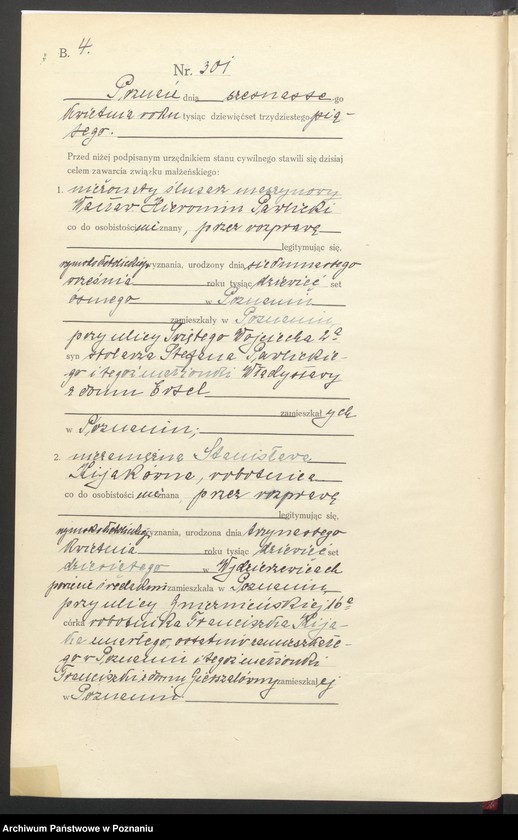 B. 4.
Nr. 301
Poznań dnia szesnastego
kwietnia roku tysiąc dziewięćset trzydziestego pią-
tego.
Przed niżej podpisanym urzędnikiem stanu cywilnego stawili się dzisiaj
celem zawarcia związku małżeńskiego:
1. nieżonaty ślusarz maszynowy
Wacław Hieronim Pawlicki
co do osobistości nieznany, przez rozprawę
legitymując się,
rzymskokatolickiego wyznania, urodzony dnia siedemnastego
września roku tysiąc dziewięć set
ósmego w Poznaniu
zamieszkały w Poznaniu,
przy ulicy Świętego Wojciecha 2a
syn stolarza Stefana Pawlickie-
go i tegoż małżonki Władysławy
z domu
zamieszkałych
w Poznaniu;
2. niezamężna Stanisława
Kijakówna, robotnica
co do osobistości nieznana, przez rozprawę
legitymując się,
rzymskokatolickiego wyznania, urodzona dnia trzynastego
kwietnia roku tysiąc dziewięć set
dziesiątego w Wydzierzewicach
powiecie średzkim zamieszkała w Poznaniu,
przy ulicy Gnieźnieńskiej 16a
córka robotnika Franciszka Kija-
ka zmarłego, ostatnio zamieszkałe-
go w Poznaniu i tegoż małżonki
Franciszki z domu zamieszkałej
w Poznaniu
Archiwum Państwowe w Poznaniu